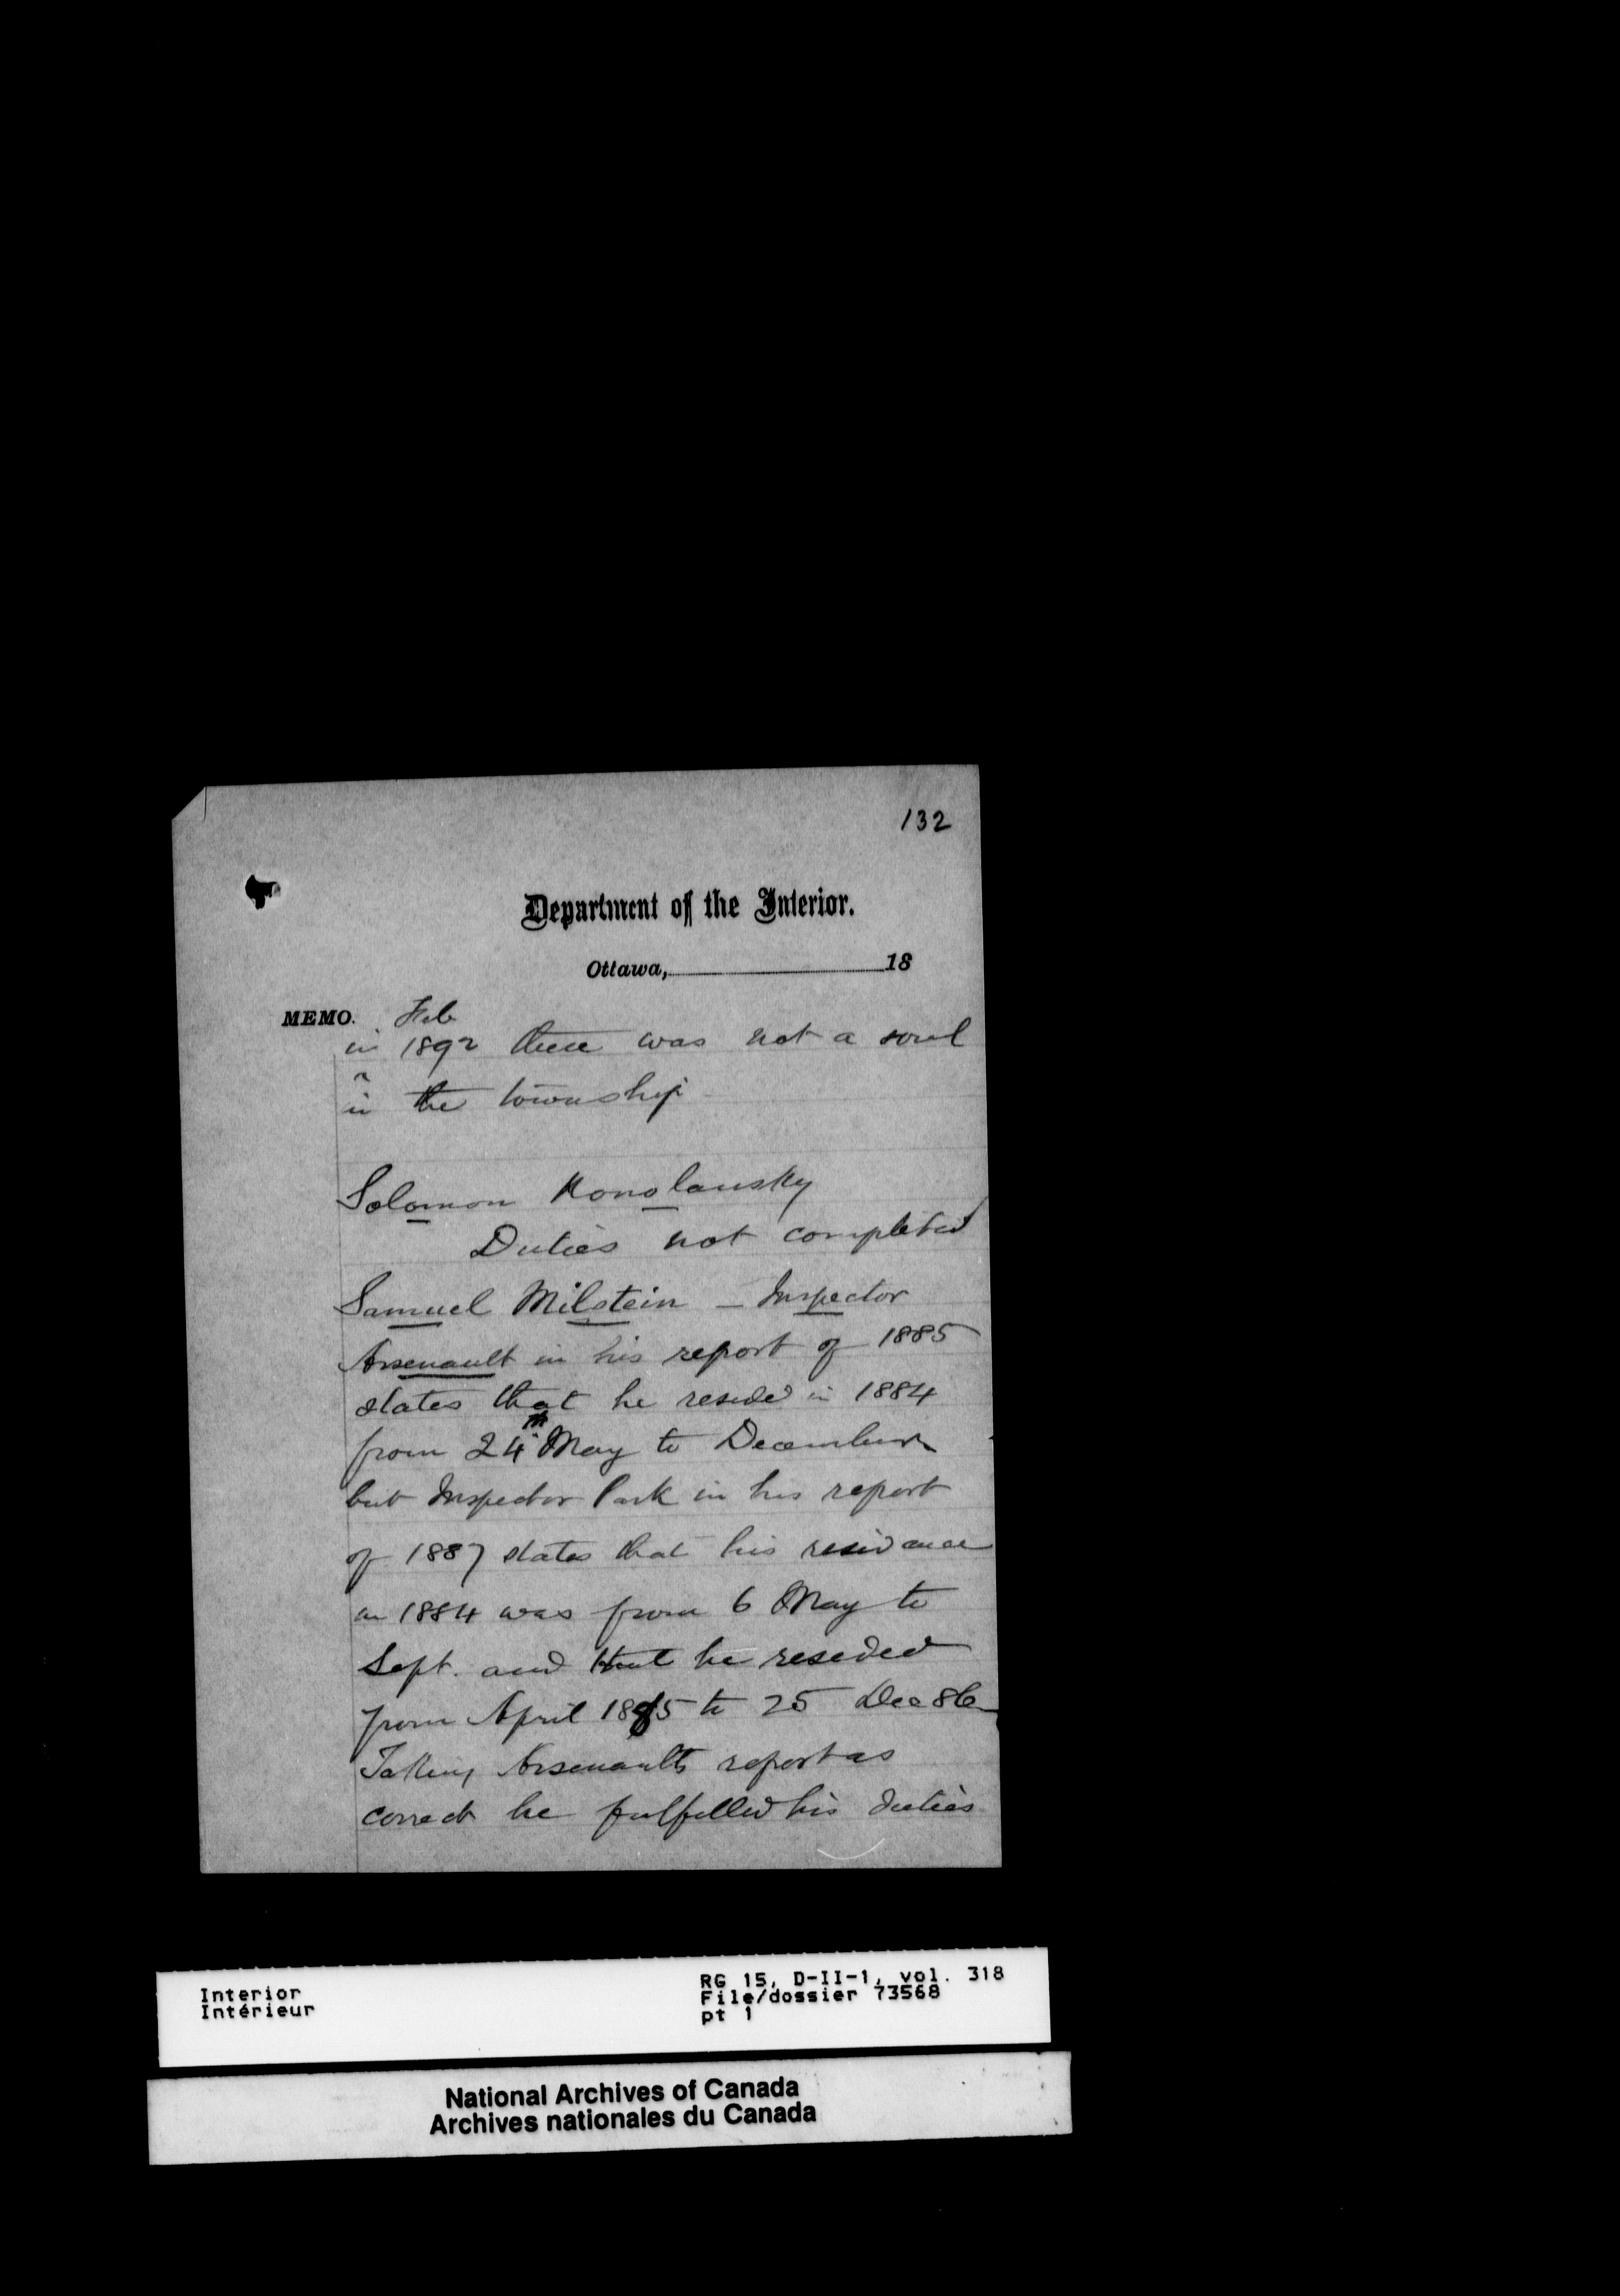 132
Department of the Interior.
Ottawa, 18
MEMO. Feb
in 1892 there was not a soul
in the township
Solomon Konolansky
Duties not completed
Samuel Milstein — Inspector
Arsenault in his report of 1885
states that he resided in 1884
from 24th May to December
but Inspector Park in his report
of 1887 states that his residence
in 1884 was from 6 May to
Sept. and that he resided
from April 1885 to 25 Dec 86
Taking Arsenaults report as
correct he fulfilled his duties
Interior
Intérieur
RG 15, D-II-1, vol. 318
File/dossier 73568
pt 1
National Archives of Canada
Archives nationales du Canada